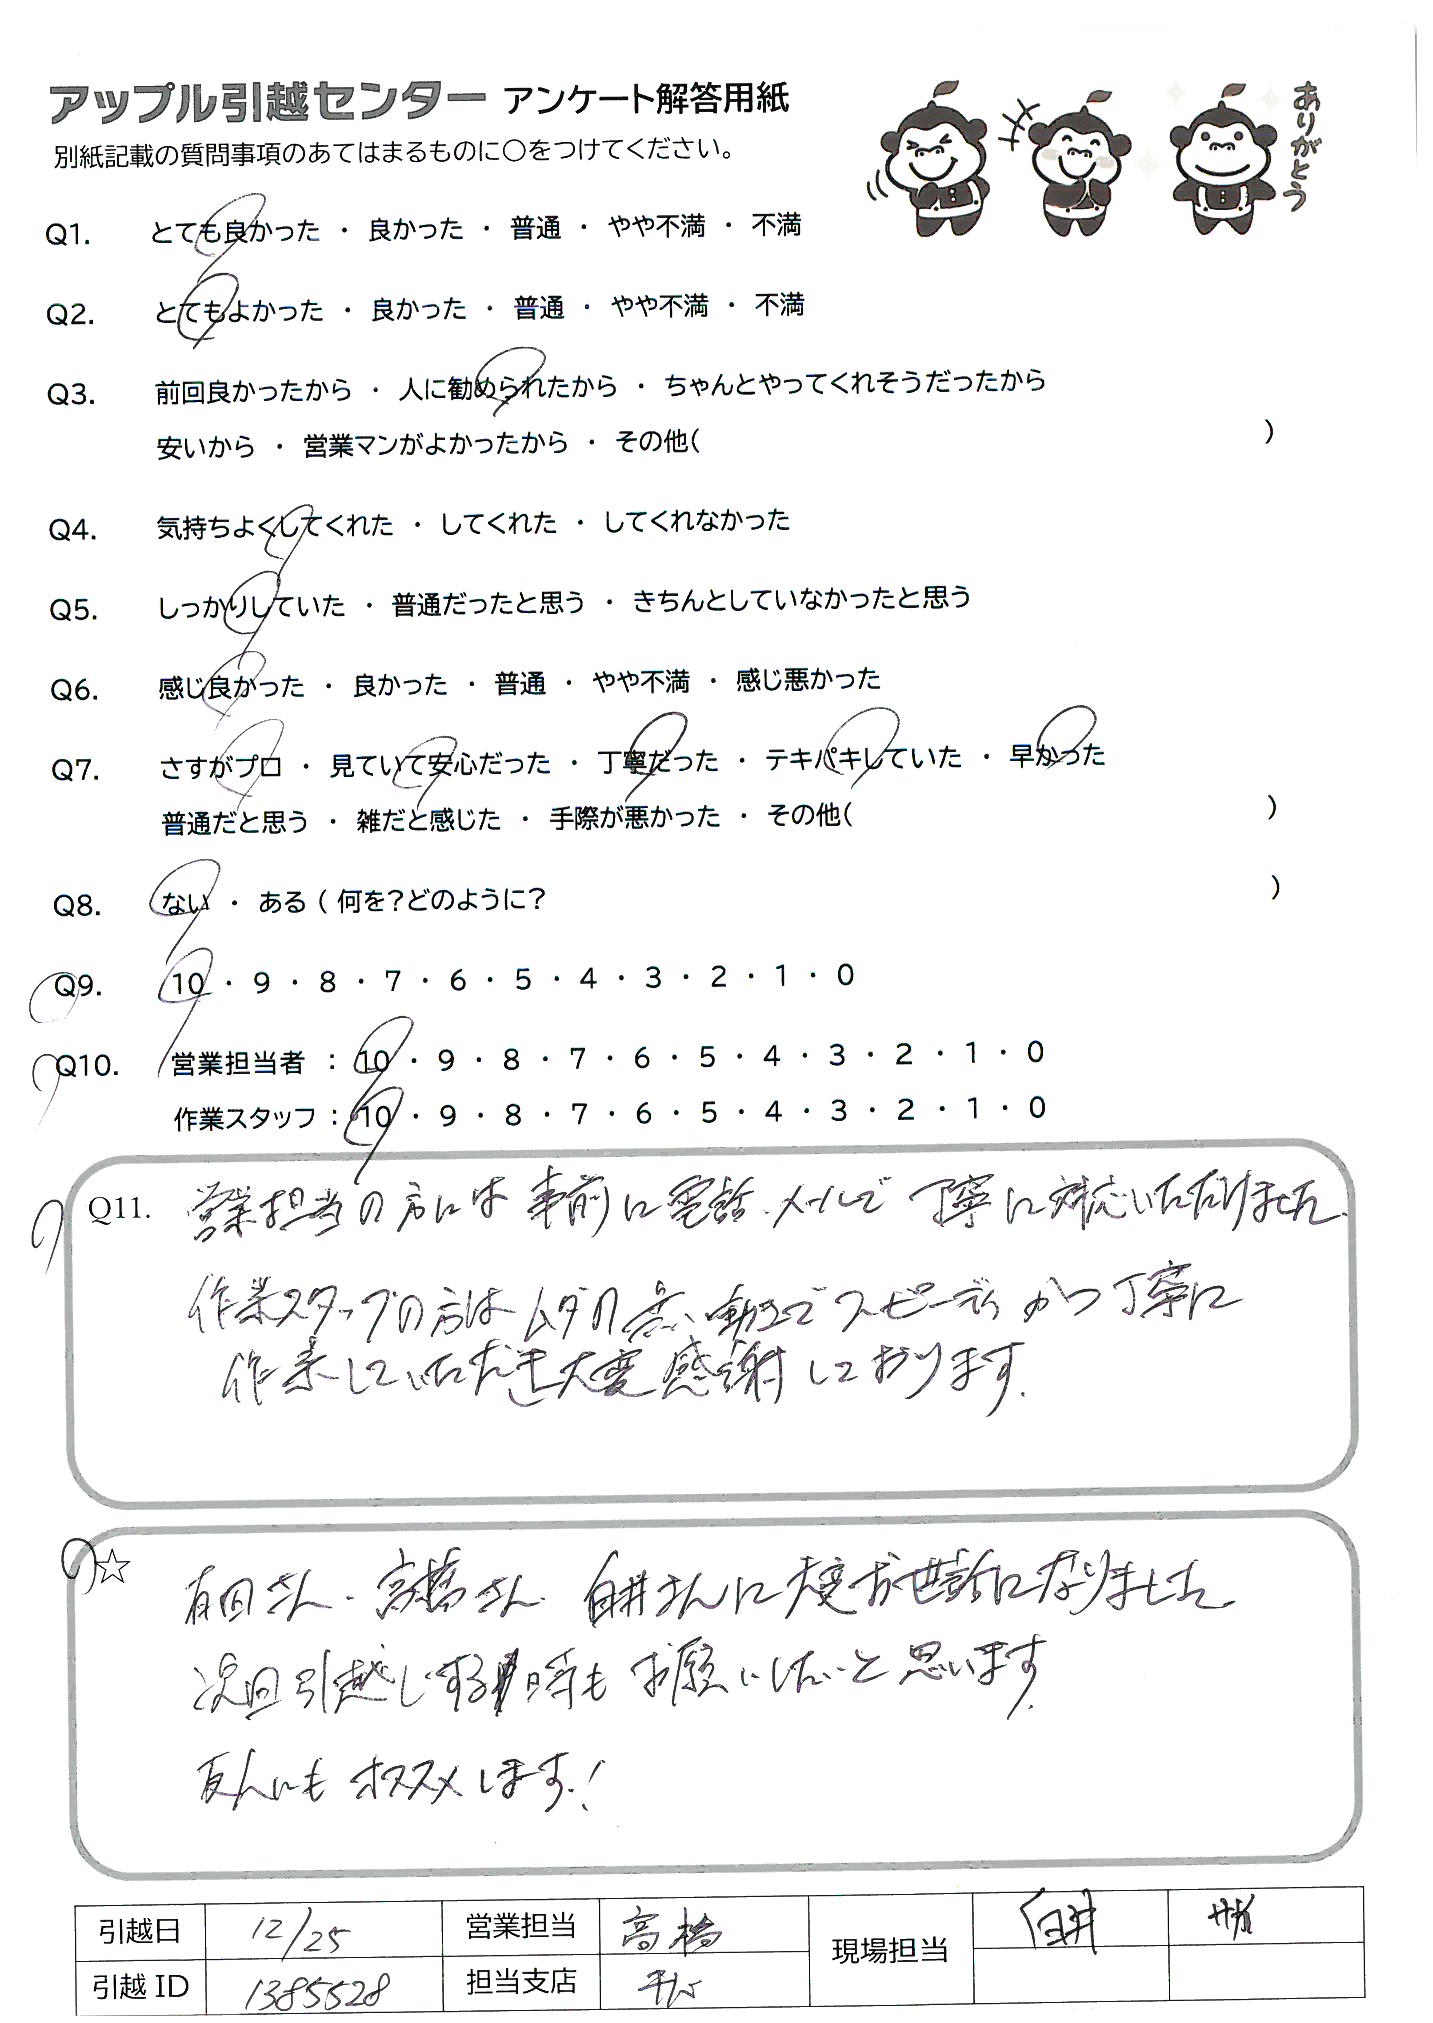 アップル引越センター アンケート解答用紙
ありがとう
別紙記載の質問事項のあてはまるものに○をつけてください。
Q1. とても良かった ・ 良かった ・ 普通 ・ やや不満 ・ 不満
Q2. とてもよかった ・ 良かった ・ 普通 ・ やや不満 ・ 不満
Q3. 前回良かったから ・ 人に勧められたから ・ ちゃんとやってくれそうだったから
安いから ・ 営業マンがよかったから ・ その他( )
Q4. 気持ちよくしてくれた ・ してくれた ・ してくれなかった
Q5. しっかりしていた ・ 普通だったと思う ・ きちんとしていなかったと思う
Q6. 感じ良かった ・ 良かった ・ 普通 ・ やや不満 ・ 感じ悪かった
Q7. さすがプロ ・ 見ていて安心だった ・ 丁寧だった ・ テキパキしていた ・ 早かった
普通だと思う ・ 雑だと感じた ・ 手際が悪かった ・ その他( )
Q8. ない ・ ある ( 何を?どのように? )
Q9. 10 ・ 9 ・ 8 ・ 7 ・ 6 ・ 5 ・ 4 ・ 3 ・ 2 ・ 1 ・ 0
Q10. 営業担当者 : 10 ・ 9 ・ 8 ・ 7 ・ 6 ・ 5 ・ 4 ・ 3 ・ 2 ・ 1 ・ 0
作業スタッフ : 10 ・ 9 ・ 8 ・ 7 ・ 6 ・ 5 ・ 4 ・ 3 ・ 2 ・ 1 ・ 0
Q11. 営業担当の方には事前に電話、メールで丁寧に対応いただけました。
作業スタッフの方はムダの無い動きでスピーディかつ丁寧に
作業していただき大変感謝しております。
☆ さん、高橋さん、臼井さんに大変お世話になりました。
次回引越しする時もお願いしたいと思います。
友人にもオススメします!
引越日 12/25 営業担当 高橋 現場担当 臼井
引越ID 1385528 担当支店